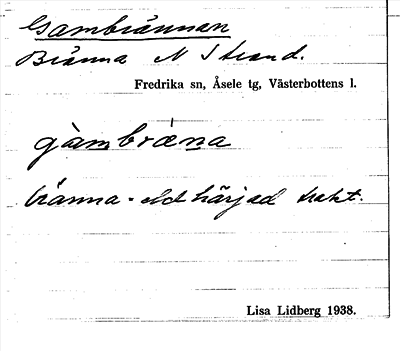 Gambrännan
Bränna N Strand.
Fredrika sn, Åsele tg, Västerbottens l.
gàm bræ̀na
bränna - eldhärjad trakt.
Lisa Lidberg 1938.